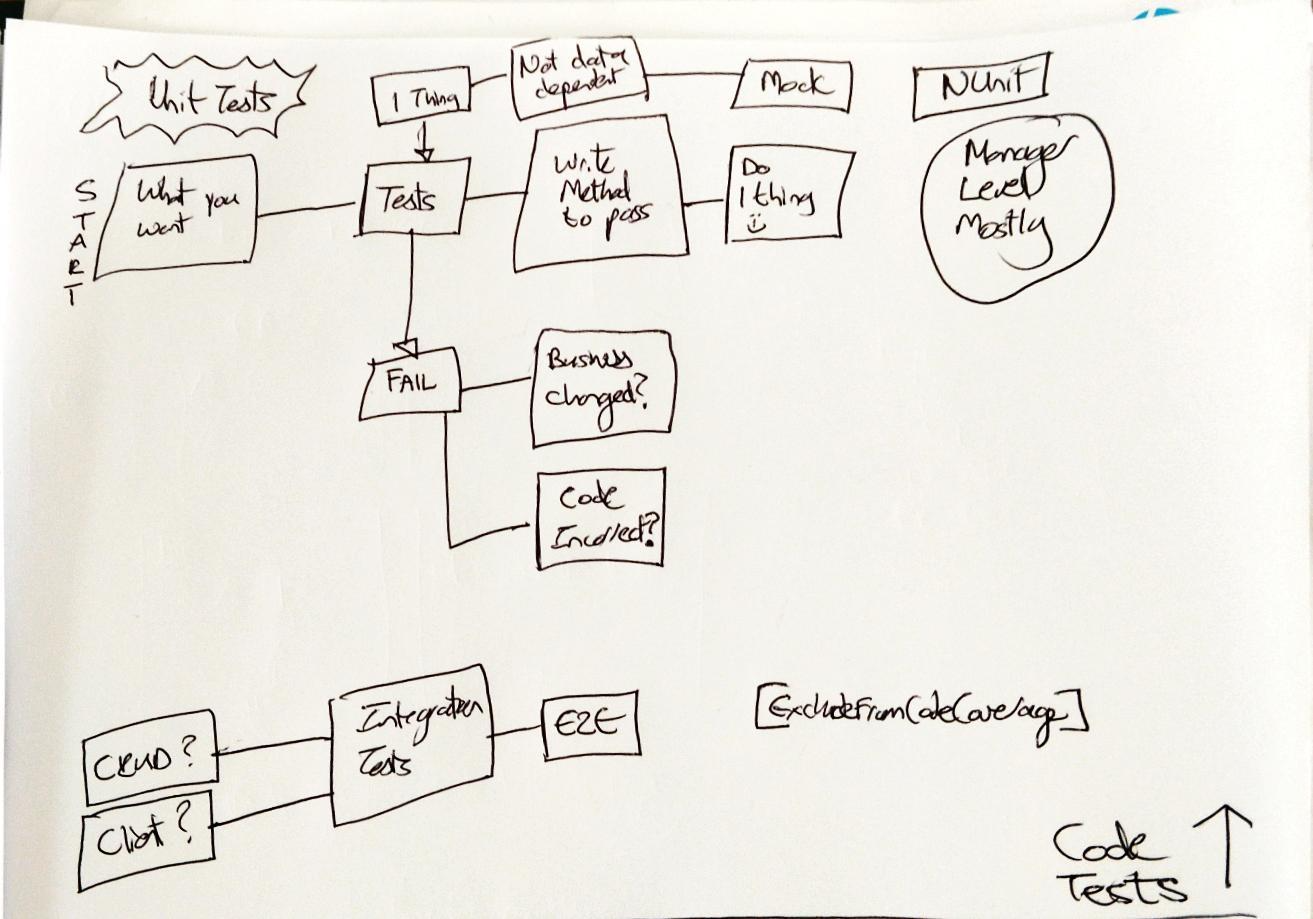 Unit Tests
1 Thing
Not data
dependent
Mock
NUnit
START
What you
want
Tests
Write
Method
to pass
Do
1 thing
Manager
Level
Mostly
FAIL
Business
changed?
Code
Incorrect?
CRUD?
Client?
Integration
Tests
E2E
[ExcludeFromCodeCoverage]
Code
Tests